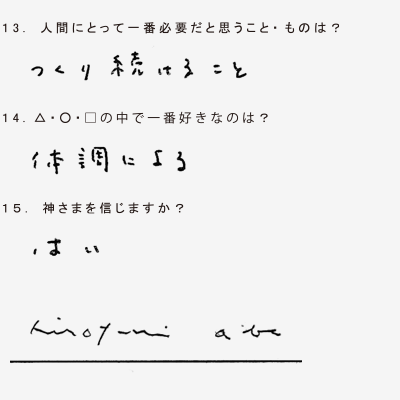 13. 人間にとって一番必要だと思うこと・ものは？
つくり続けること
14. △・○・□の中で一番好きなのは？
体調による
15. 神さまを信じますか？
はい
hiroyuki abe